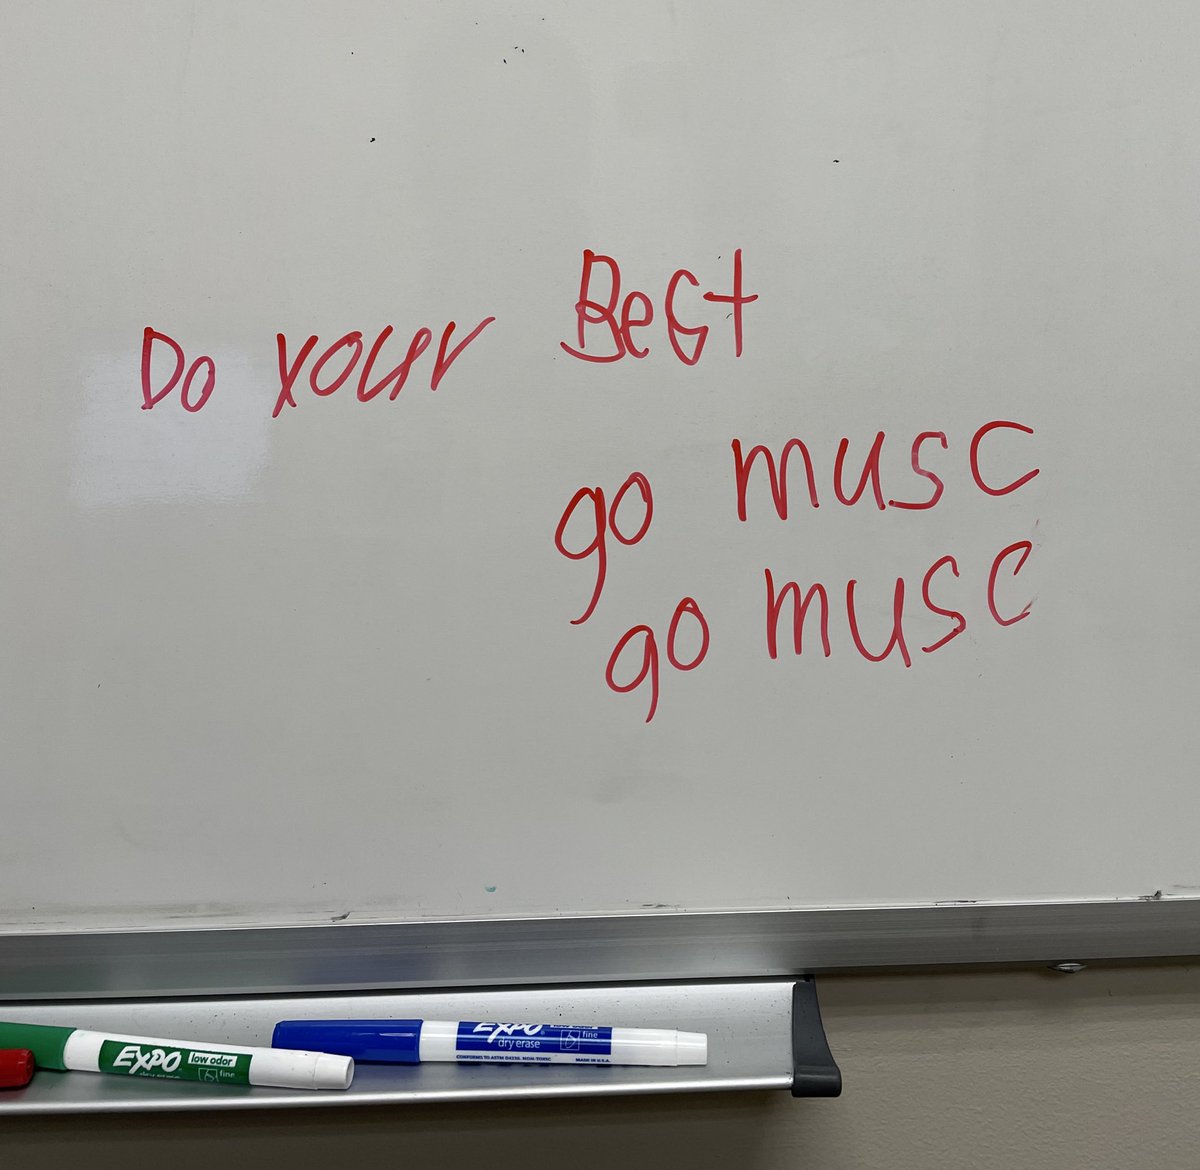 Do your Best
go musc
go musc
EXPO low odor
dry erase fine
EXPO low odor
dry erase fine
CONFORMS TO ASTM D4236. NON-TOXIC MADE IN U.S.A.